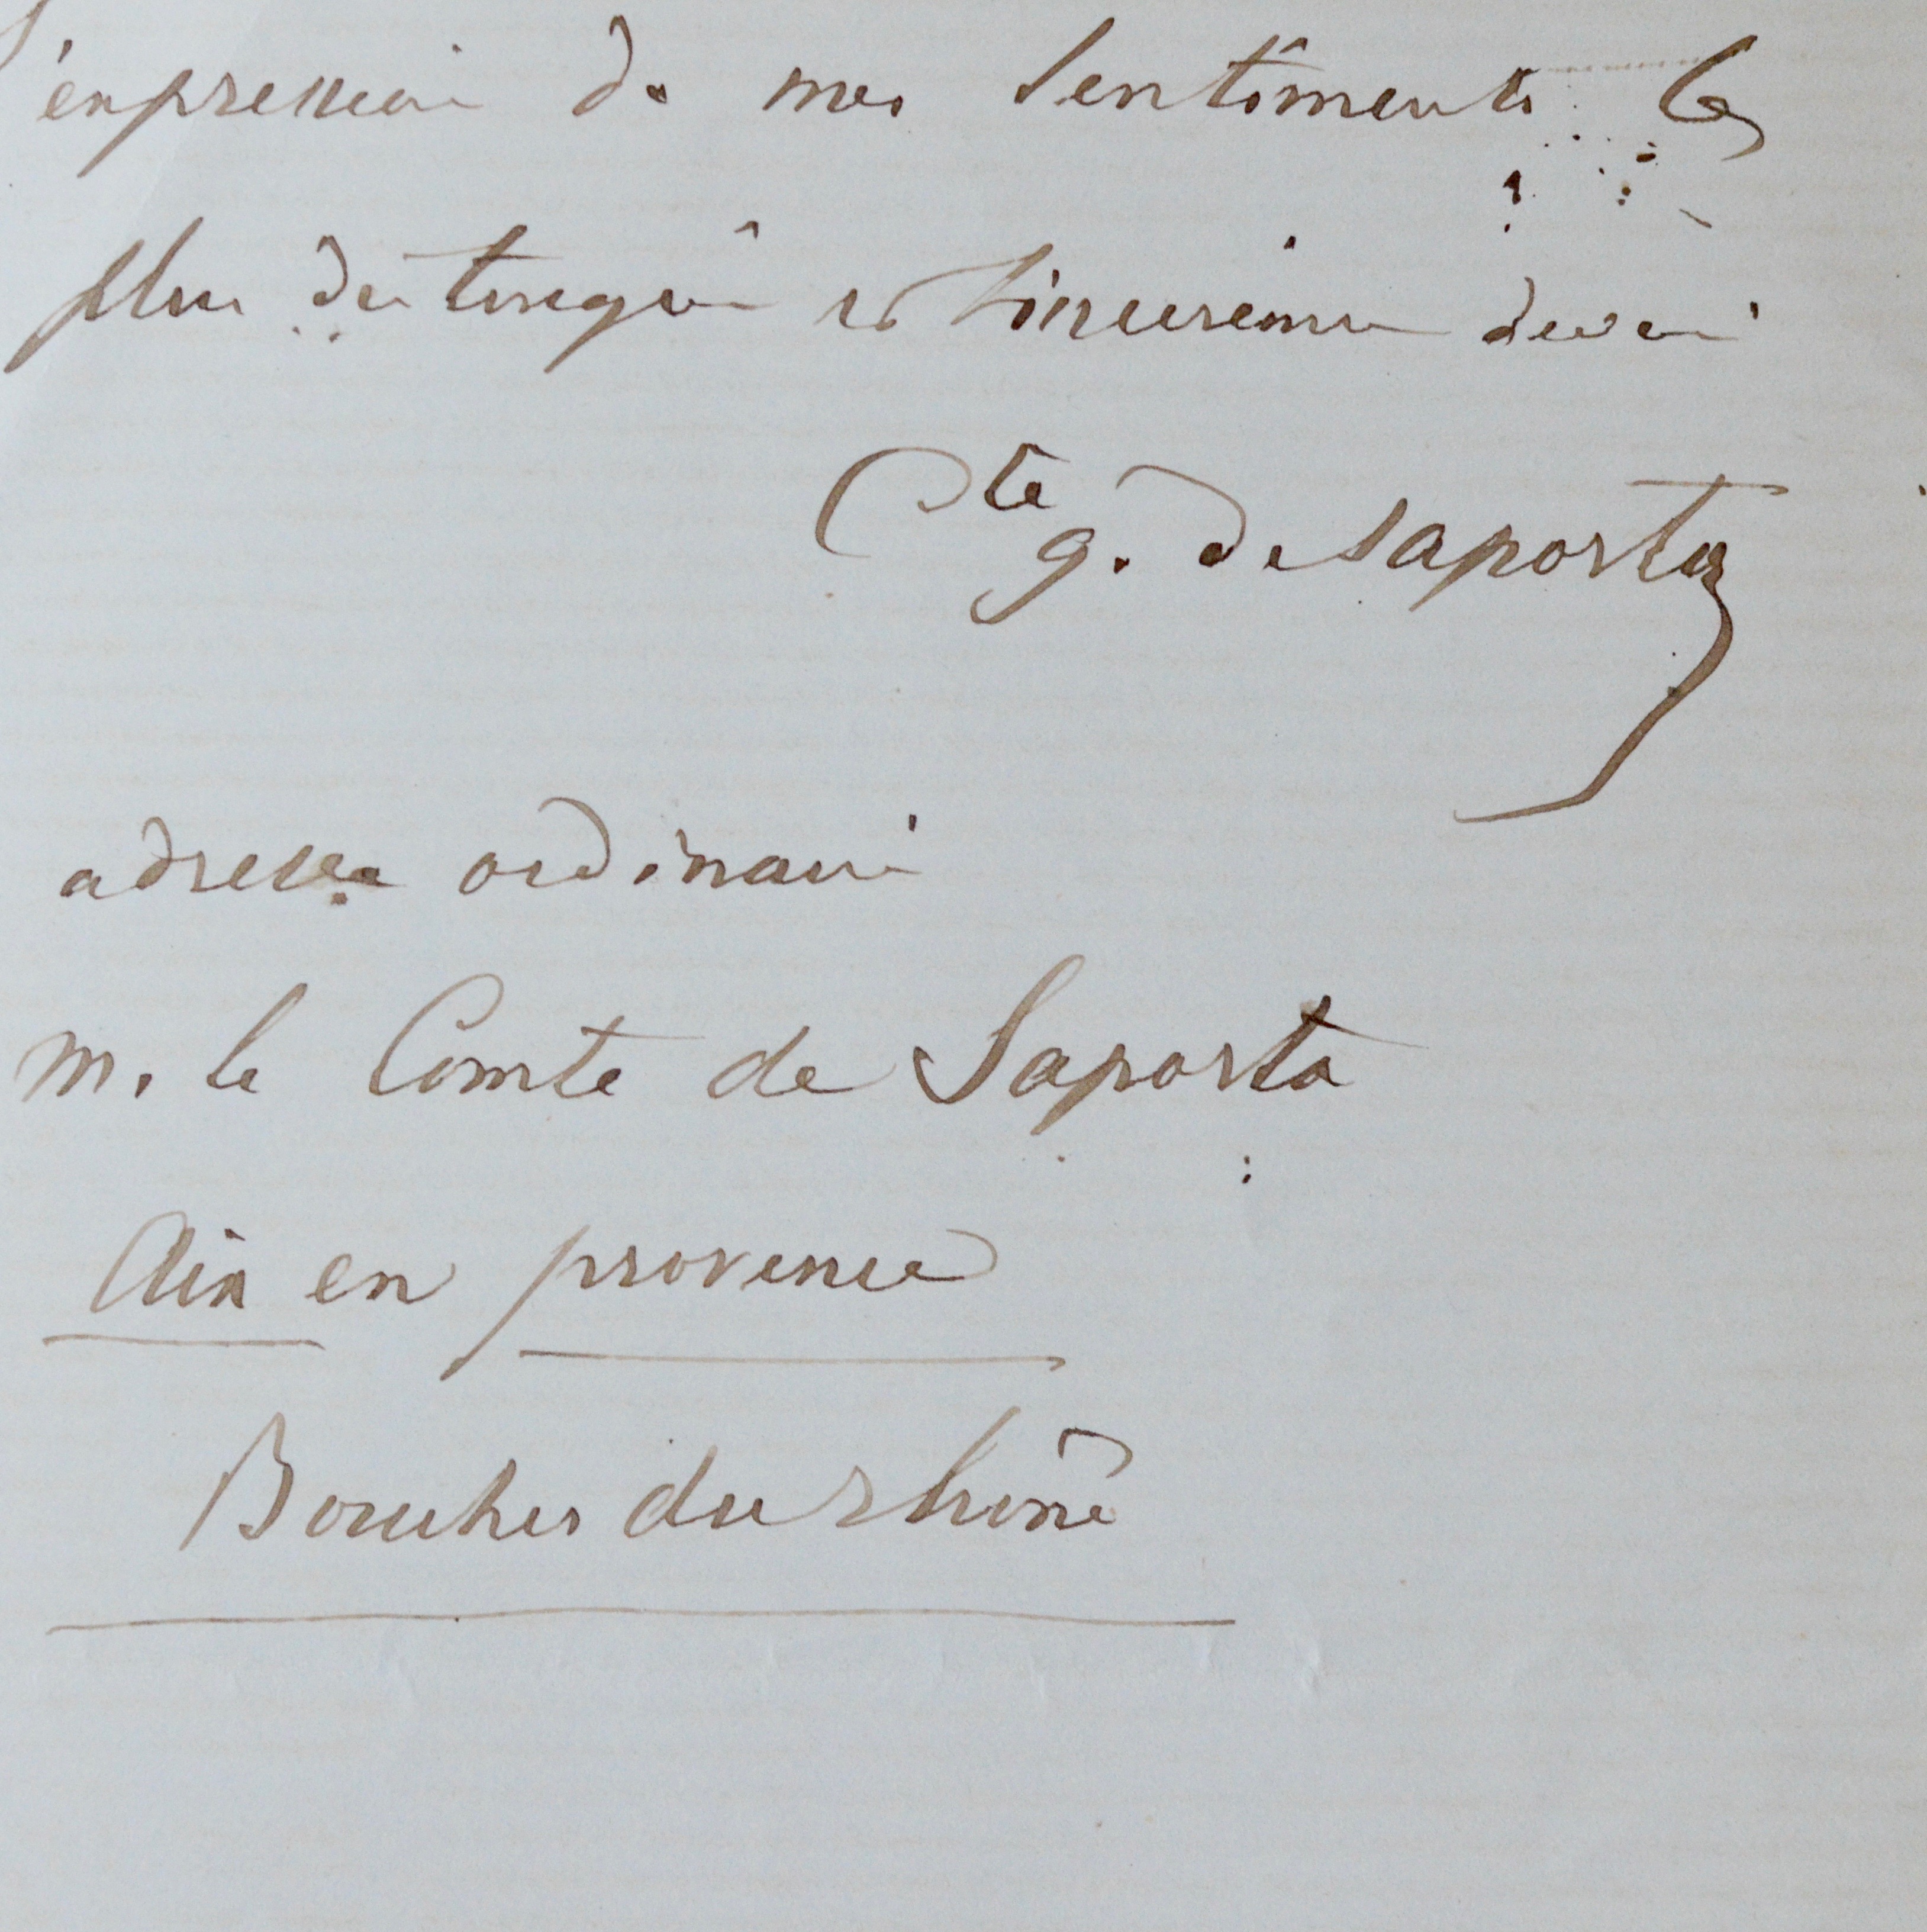 l'expression de mes sentiments les
plus distingués et sincèrement dévoués
Cte g. de saporta
adresse ordinaire
m. le Comte de Saporta
Aix en provence
Bouches du rhône